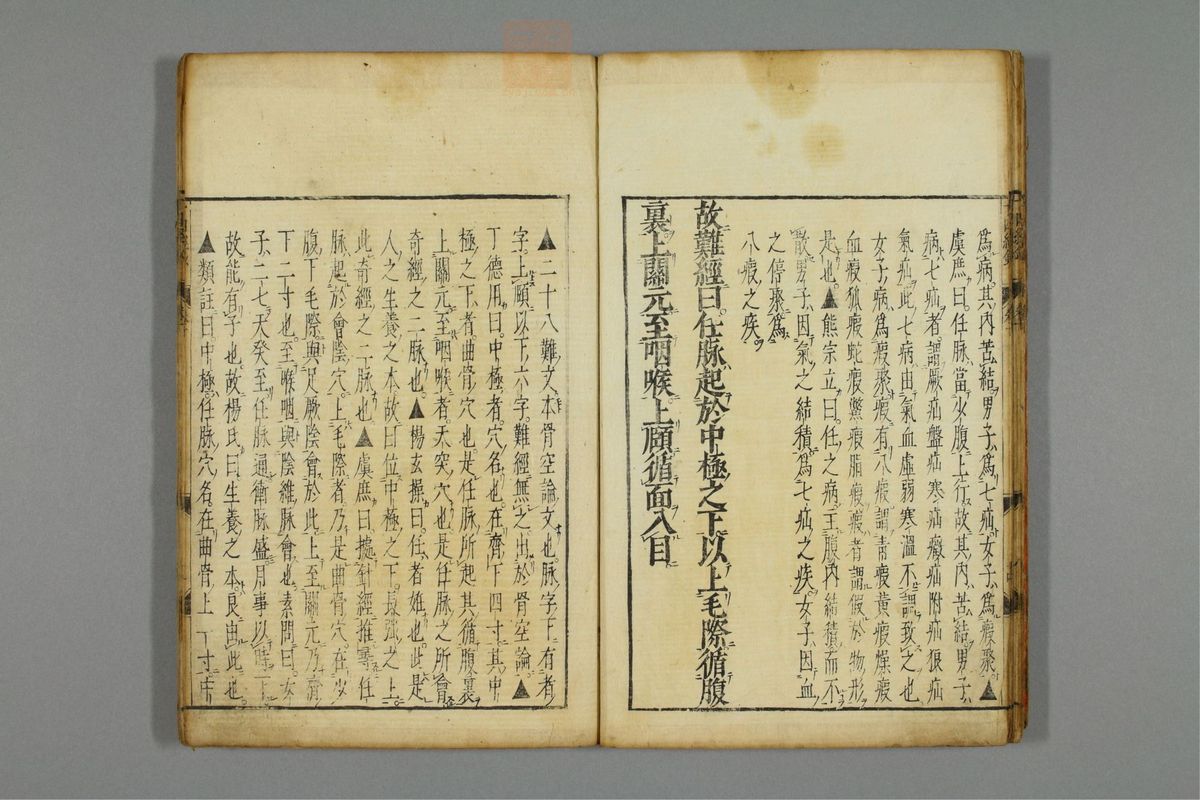 爲病其内苦結男子爲七疝女子爲瘕聚▲
虞庶曰任脉當少腹上行故其内苦結男子
病七疝七疝者謂厥疝盤疝寒疝癥疝附疝狼疝
氣疝此七病由氣血虚弱寒温不調致之也
女子病爲瘕聚瘕有八瘕謂靑瘕黄瘕燥瘕
血瘕狐瘕蛇瘕鱉瘕脂瘕瘕者謂假於物形
是也▲熊宗立曰任之病主腹内結積而不
散男子因氣之結積爲七疝之疾女子因血
之停聚爲
八瘕之疾
故難經曰任脉起於中極之下以上毛際循腹
裏上關元至咽喉上頤循面入目
▲二十八難文本骨空論文也脉字下有者
字上頤以下六字難經無之出於骨空論▲
丁德用曰中極者穴名也在臍下四寸其中
極之下者曲骨穴也是任脉所起其循腹裏
上關元至咽喉者天突穴也是任脉之所會
奇經之二脉也▲楊玄操曰任者妊也此是
人之生養之本故曰位中極之下長强之上
此奇經之二脉也▲虞庶曰據針經推尋任
脉起於會陰穴上毛際者乃是曲骨穴在少
腹下毛際與足厥陰會於此上至關元乃臍
下二寸也至喉咽與陰維脉會也素問曰女
子二七天癸至任脉通衝脉盛月事以時下
故能有子也故楊氏曰生養之本良由此也
▲類註曰中極任脉穴名在曲骨上一寸中